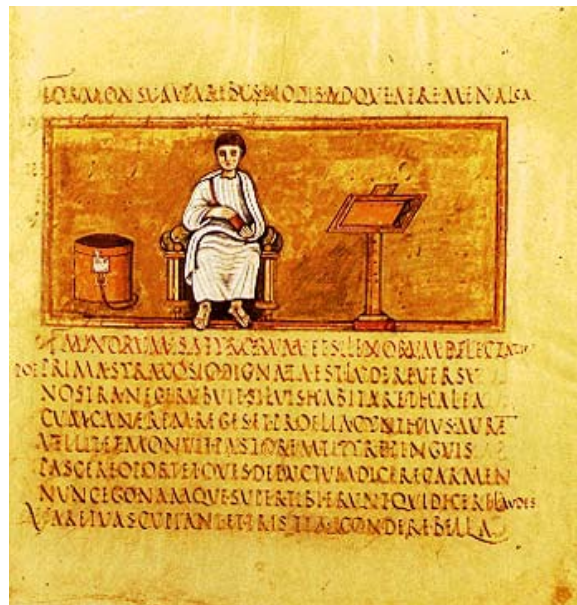 FORMONSUM PARIBUS NODIS ATQVE AERE MENALCA
SATYRORUM DELECTATIO
POE PRIMA SYRACOSIO DIGNATA EST LUDERE VERSU
NOSTRA NEC ERUBUIT SILVIS HABITARE THALEA
CUM CANEREM REGES ET PROELIA CYNTHIUS AURE
VELLIT ET MONUIT PASTOREM TITYRE PINGUIS
PASCERE OPORTET OVES DEDUCTUM DICERE CARMEN
NUNC EGO NAMQUE SUPER TIBI ERUNT QUI DICERE LAUDES
VARE TUAS CUPIANT ET TRISTIA CONDERE BELLA